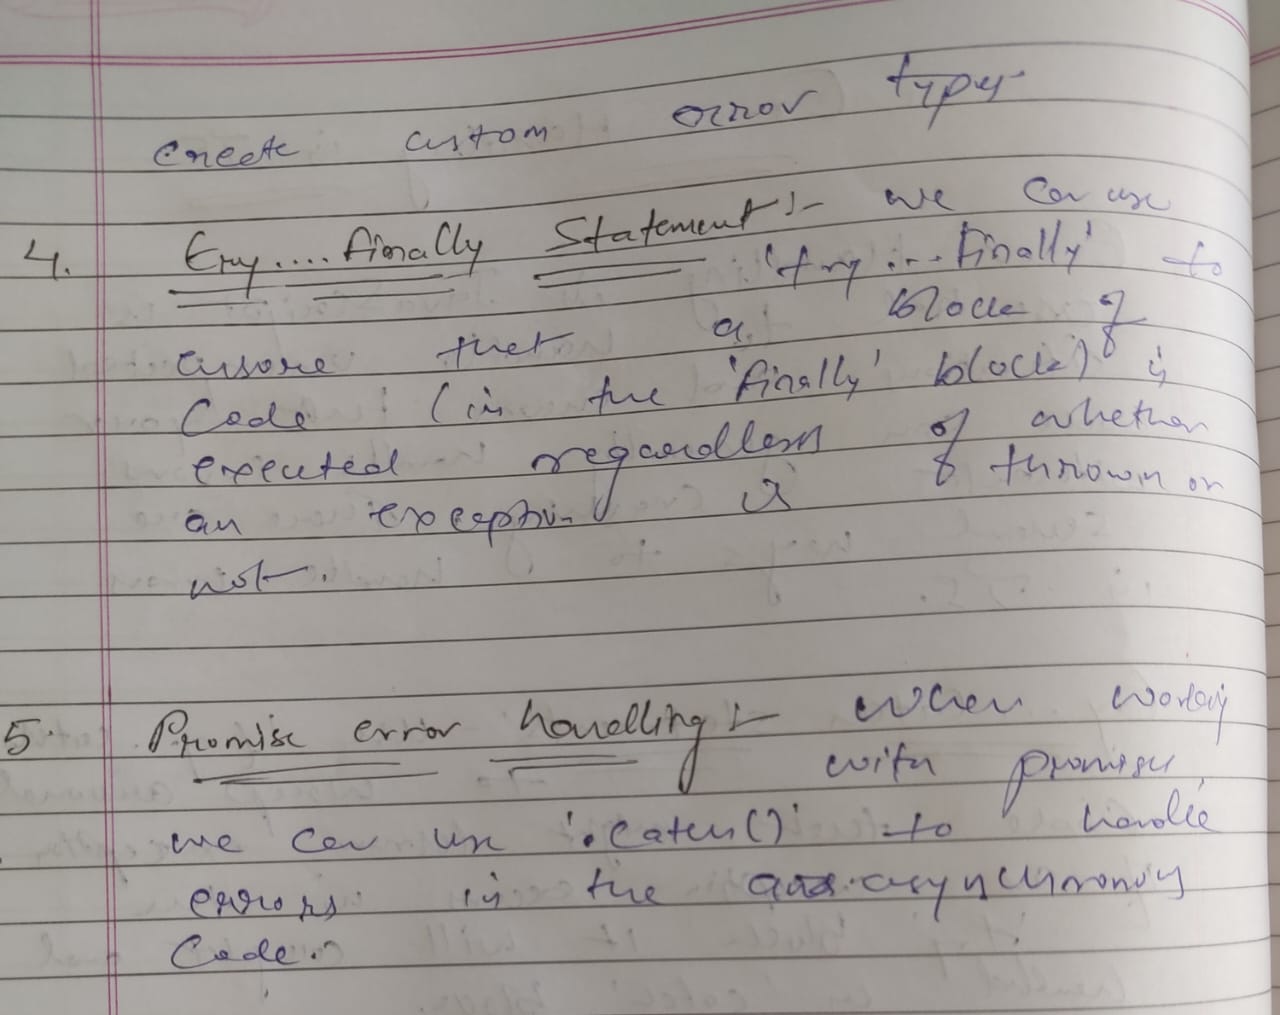 create custom error types
4. Try.... finally Statement :- we can use
'try .... finally' to
ensure that a block of
Code (in the 'finally' block) is
executed regardless of whether
an exception is thrown or
not.
5. Promise error handling :- when working
with promises,
we can use '.catch()' to handle
errors in the asynchronous
Code.